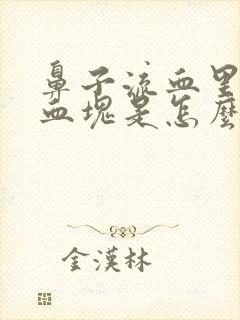 鼻子流血里
血塊是怎麼
金漢林